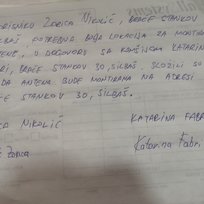 KORISNIK ZORICA NIKOLIĆ, BRAĆE STANKOV
POTREBNA BOLJA LOKACIJA ZA MONTAŽU
U DOGOVORU SA KOMŠINICOM KATARINA
BRAĆE STANKOV 30, SILBAŠ, SLOŽILI SU
DA ANTENA BUDE MONTIRANA NA ADRESI
STANKOV 30, SILBAŠ.
NIKOLIĆ KATARINA FABRI
Zorica Katarina Fabri